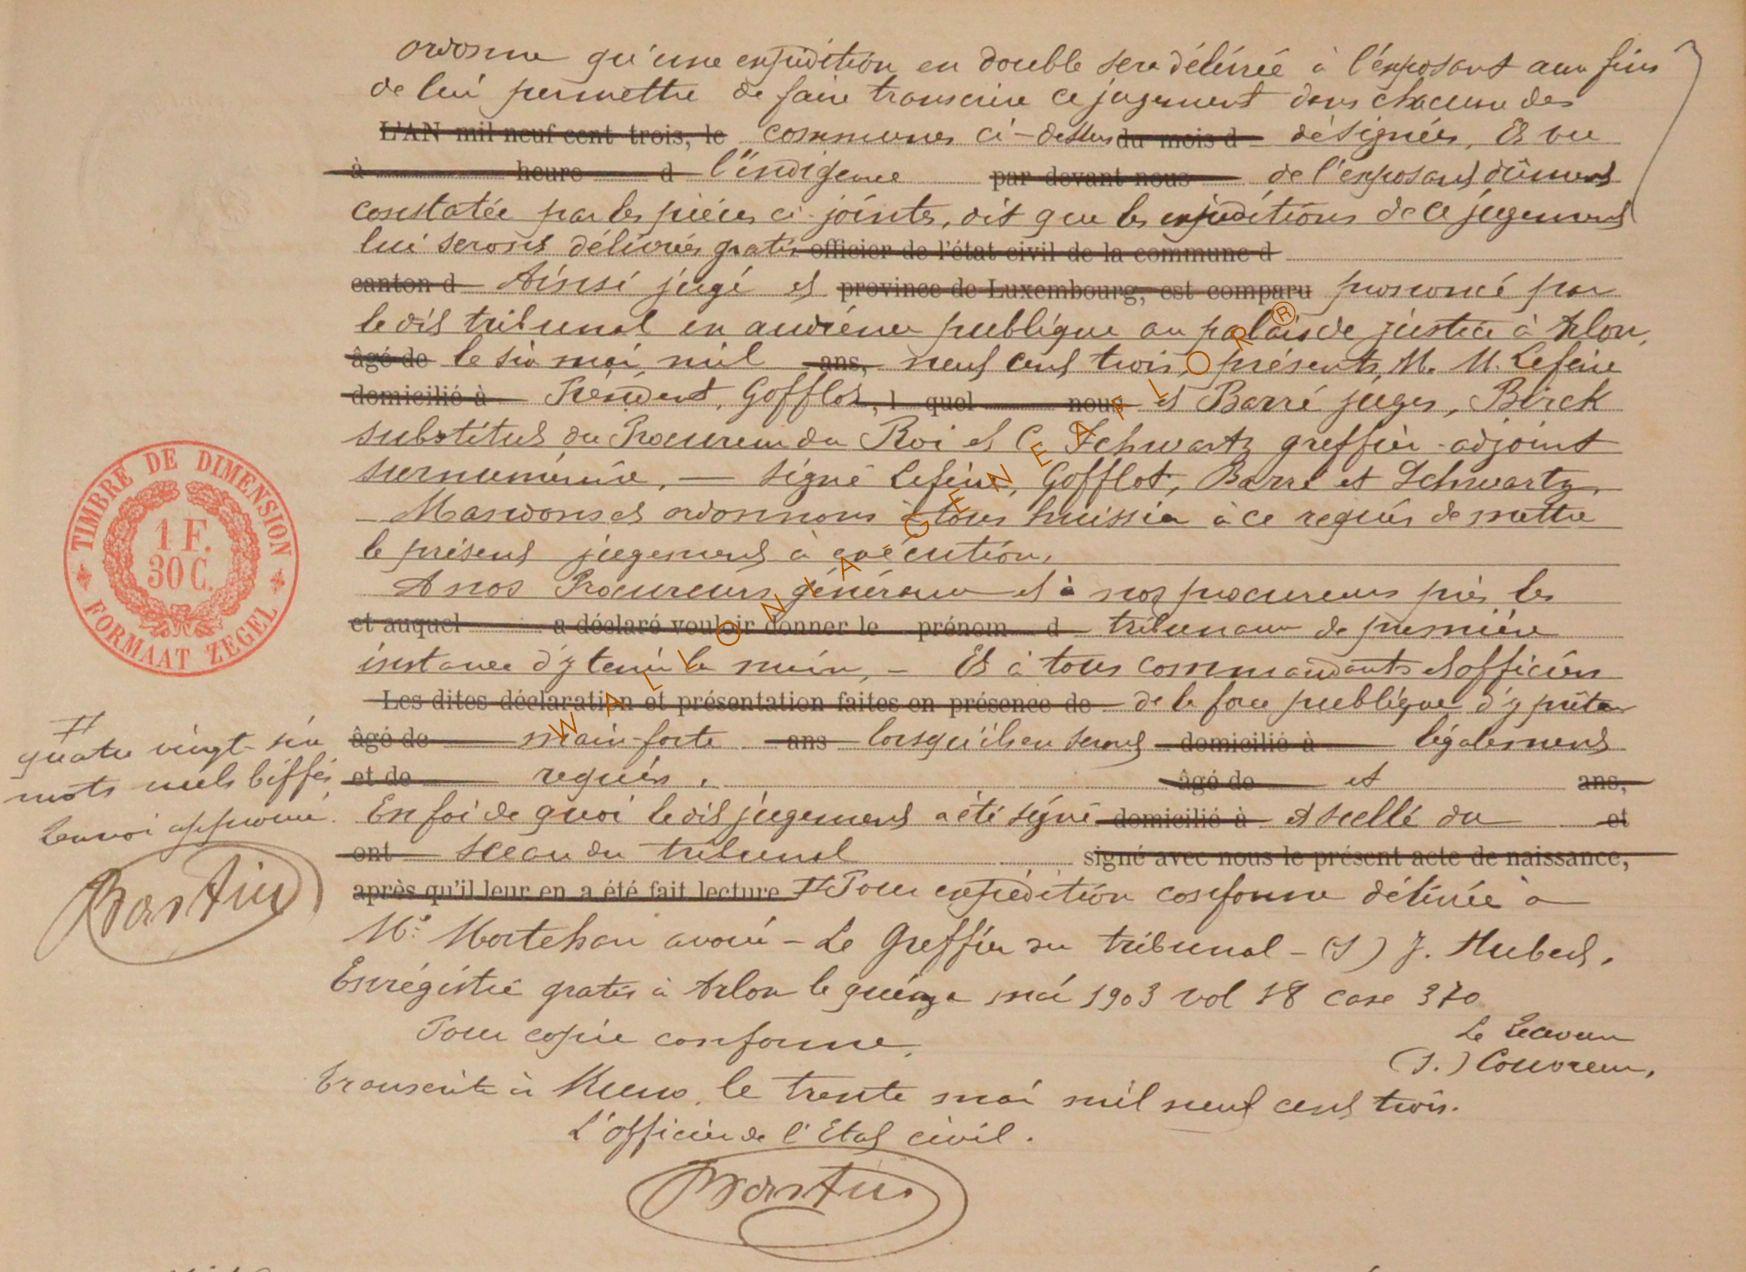 ordonne qu'une expédition en double sera délivrée à l'exposant aux fins
de lui permettre de faire transcrire ce jugement dans chacune des
L'AN mil neuf cent trois, le communes ci-dessus du mois d désignées, Et vu
à heure d l'indigence par devant nous de l'exposant dûment
constatée par les pièces ci-jointes, dit que les expéditions de ce jugement
lui seront délivrées gratis officier de l'état civil de la commune d
canton d Ainsi jugé et province de Luxembourg, est comparu prononcé par
le dit tribunal en audience publique au palais de justice à Arlon,
âgé de le six mai mil ans, neuf cent trois, présents, M. M. Lefèvre
domicilié à Président, Gofflot, l quel nous et Barré juges, Birck
substitut du Procureur du Roi et C. Schwartz greffier-adjoint
surnuméraire, — signé Lefèvre, Gofflot, Barré et Schwartz.
Mandons et ordonnons à tous huissier à ce requis de mettre
le présent jugement à exécution,
A nos Procureurs généraux et à nos procureurs près les
et auquel a déclaré vouloir donner le prénom d tribunaux de première
instance d'y tenir la main, - Et à tous commandants et officiers
Les dites déclaration et présentation faites en présence de de la force publique d'y prêter
âgé de main-forte ans lorsqu'ils en seront domicilié à légalement
et de requis. âgé de et ans,
En foi de quoi le dit jugement a été signé domicilié à et scellé du et
ont sceau du tribunal signé avec nous le présent acte de naissance,
après qu'il leur en a été fait lecture # Pour expédition conforme délivrée à
Me Mortehan avoué - Le Greffier du tribunal - (S) J. Hubert.
Enrégistré gratis à Arlon le quinze mai 1903 vol 18 case 370
Le Receveur
Pour copie conforme,
(S.) Couvreur,
Transcrite à le trente mai mil neuf cent trois.
L'officier de l'Etat civil.
#
quatre vingt-six
mots nuls biffés
Renvoi approuvé.
TIMBRE DE DIMENSION
1 F.
30 C.
FORMAAT ZEGEL
WALLONIA-GENEAFLOR®